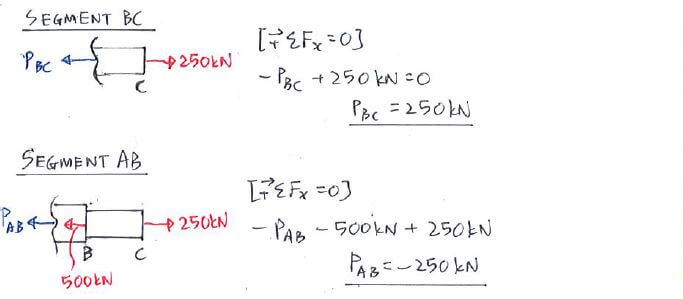 SEGMENT BC
P_BC
250kN
C
[→+ ΣFx=0]
-P_BC + 250kN=0
P_BC = 250kN
SEGMENT AB
P_AB
250kN
B C
500kN
[→+ ΣFx=0]
-P_AB - 500kN + 250kN
P_AB = -250kN